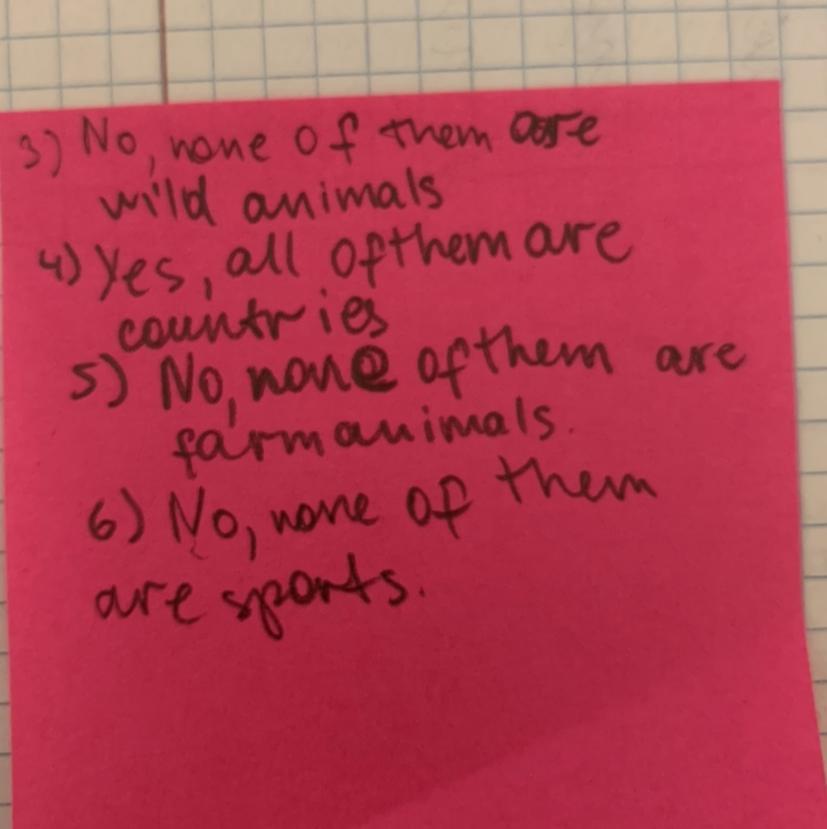 3) No, none of them are
wild animals
4) Yes, all of them are
countries
5) No, none of them are
farm animals.
6) No, none of them
are sports.